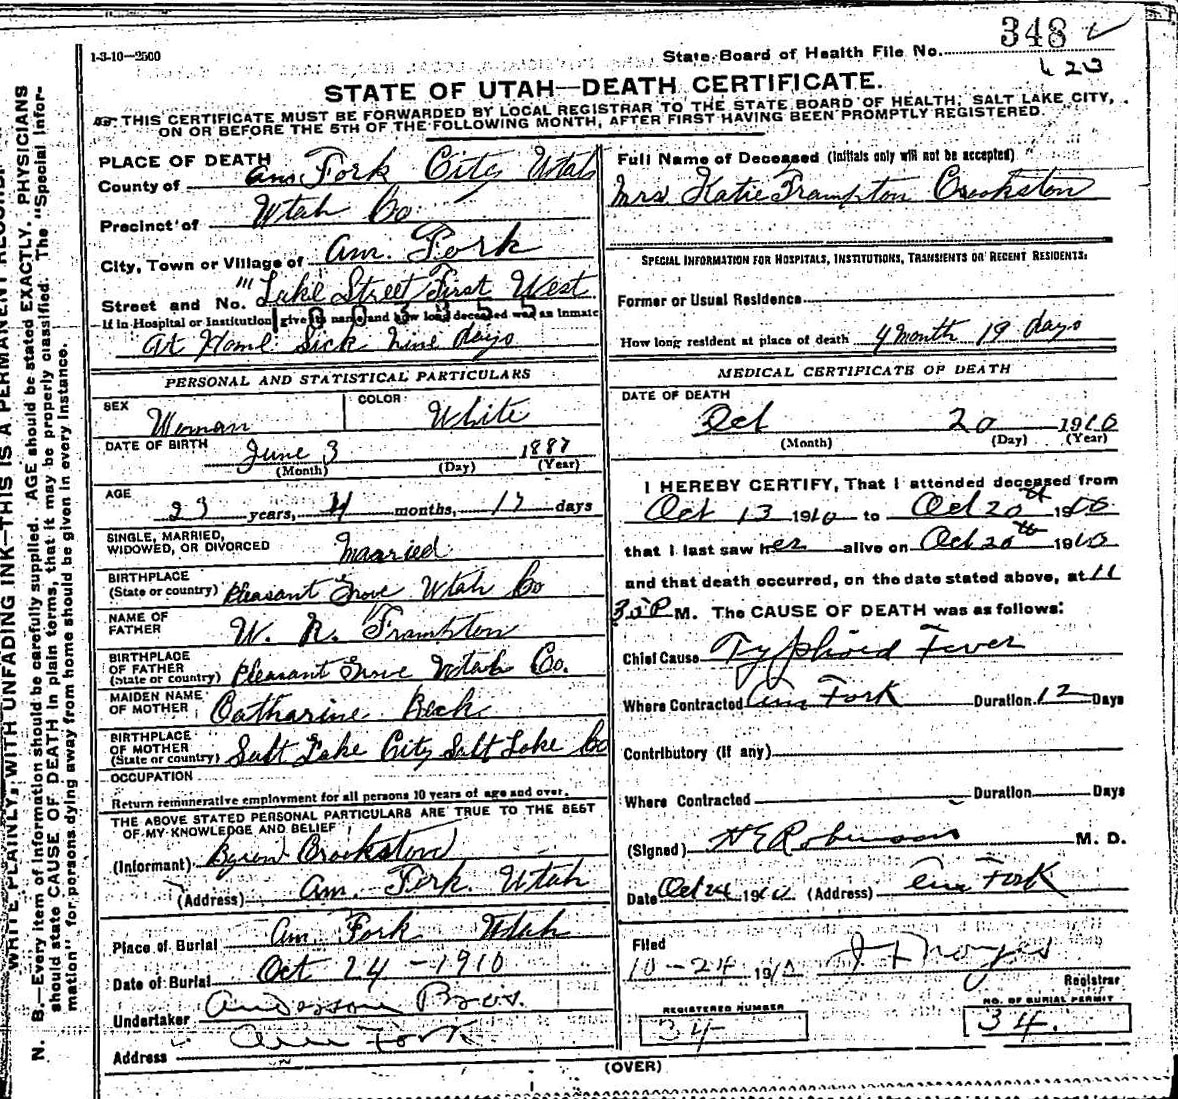 348
1-3-10—2500
State Board of Health File No.
423
STATE OF UTAH—DEATH CERTIFICATE.
THIS CERTIFICATE MUST BE FORWARDED BY LOCAL REGISTRAR TO THE STATE BOARD OF HEALTH, SALT LAKE CITY,
ON OR BEFORE THE 5TH OF THE FOLLOWING MONTH, AFTER FIRST HAVING BEEN PROMPTLY REGISTERED.
PLACE OF DEATH
County of Am Fork City Utah
Precinct of Utah Co
City, Town or Village of Am. Fork
Street and No. "" Lake Street First West
If in Hospital or Institution give its name and how long deceased was an inmate
1003355
At Home Sick Nine days
PERSONAL AND STATISTICAL PARTICULARS
SEX Woman COLOR White
DATE OF BIRTH June 3 1887
(Month) (Day) (Year)
AGE 23 years, 4 months, 17 days
SINGLE, MARRIED,
WIDOWED, OR DIVORCED Married
BIRTHPLACE
(State or country) Pleasant Grove Utah Co
NAME OF
FATHER W. R. Frampton
BIRTHPLACE
OF FATHER
(State or country) Pleasant Grove Utah Co.
MAIDEN NAME
OF MOTHER Catharine Beck
BIRTHPLACE
OF MOTHER
(State or country) Salt Lake City Salt Lake Co
OCCUPATION
Return remunerative employment for all persons 10 years of age and over.
THE ABOVE STATED PERSONAL PARTICULARS ARE TRUE TO THE BEST
OF MY KNOWLEDGE AND BELIEF
(Informant) Byron Crookston
(Address) Am. Fork. Utah
Place of Burial Am. Fork Utah
Date of Burial Oct 24 - 1910
Undertaker Anderson Bros.
Address Am Fork
Full Name of Deceased (Initials only will not be accepted)
Mrs Katie Frampton Crookston
SPECIAL INFORMATION FOR HOSPITALS, INSTITUTIONS, TRANSIENTS OR RECENT RESIDENTS:
Former or Usual Residence
How long resident at place of death 4 month 19 days
MEDICAL CERTIFICATE OF DEATH
DATE OF DEATH
Oct 20 1910
(Month) (Day) (Year)
I HEREBY CERTIFY, That I attended deceased from
Oct 13 1910 to Oct 20th 1910
that I last saw her alive on Oct 20th 1910
and that death occurred, on the date stated above, at 11
35 P M. The CAUSE OF DEATH was as follows:
Chief Cause Typhoid Fever
Where Contracted Am Fork Duration 12 Days
Contributory (if any)
Where Contracted Duration Days
(Signed) H E Robinson M. D.
Date Oct 24 1910 (Address) Am Fork
Filed
10-24 1910 J F Noyes
Registrar
REGISTERED NUMBER
34
NO. OF BURIAL PERMIT
34.
(OVER)
WRITE PLAINLY, WITH UNFADING INK—THIS IS A PERMANENT RECORD.
N. B.—Every item of information should be carefully supplied. AGE should be stated EXACTLY. PHYSICIANS
should state CAUSE OF DEATH in plain terms, that it may be properly classified. The "Special Infor-
mation" for persons dying away from home should be given in every instance.